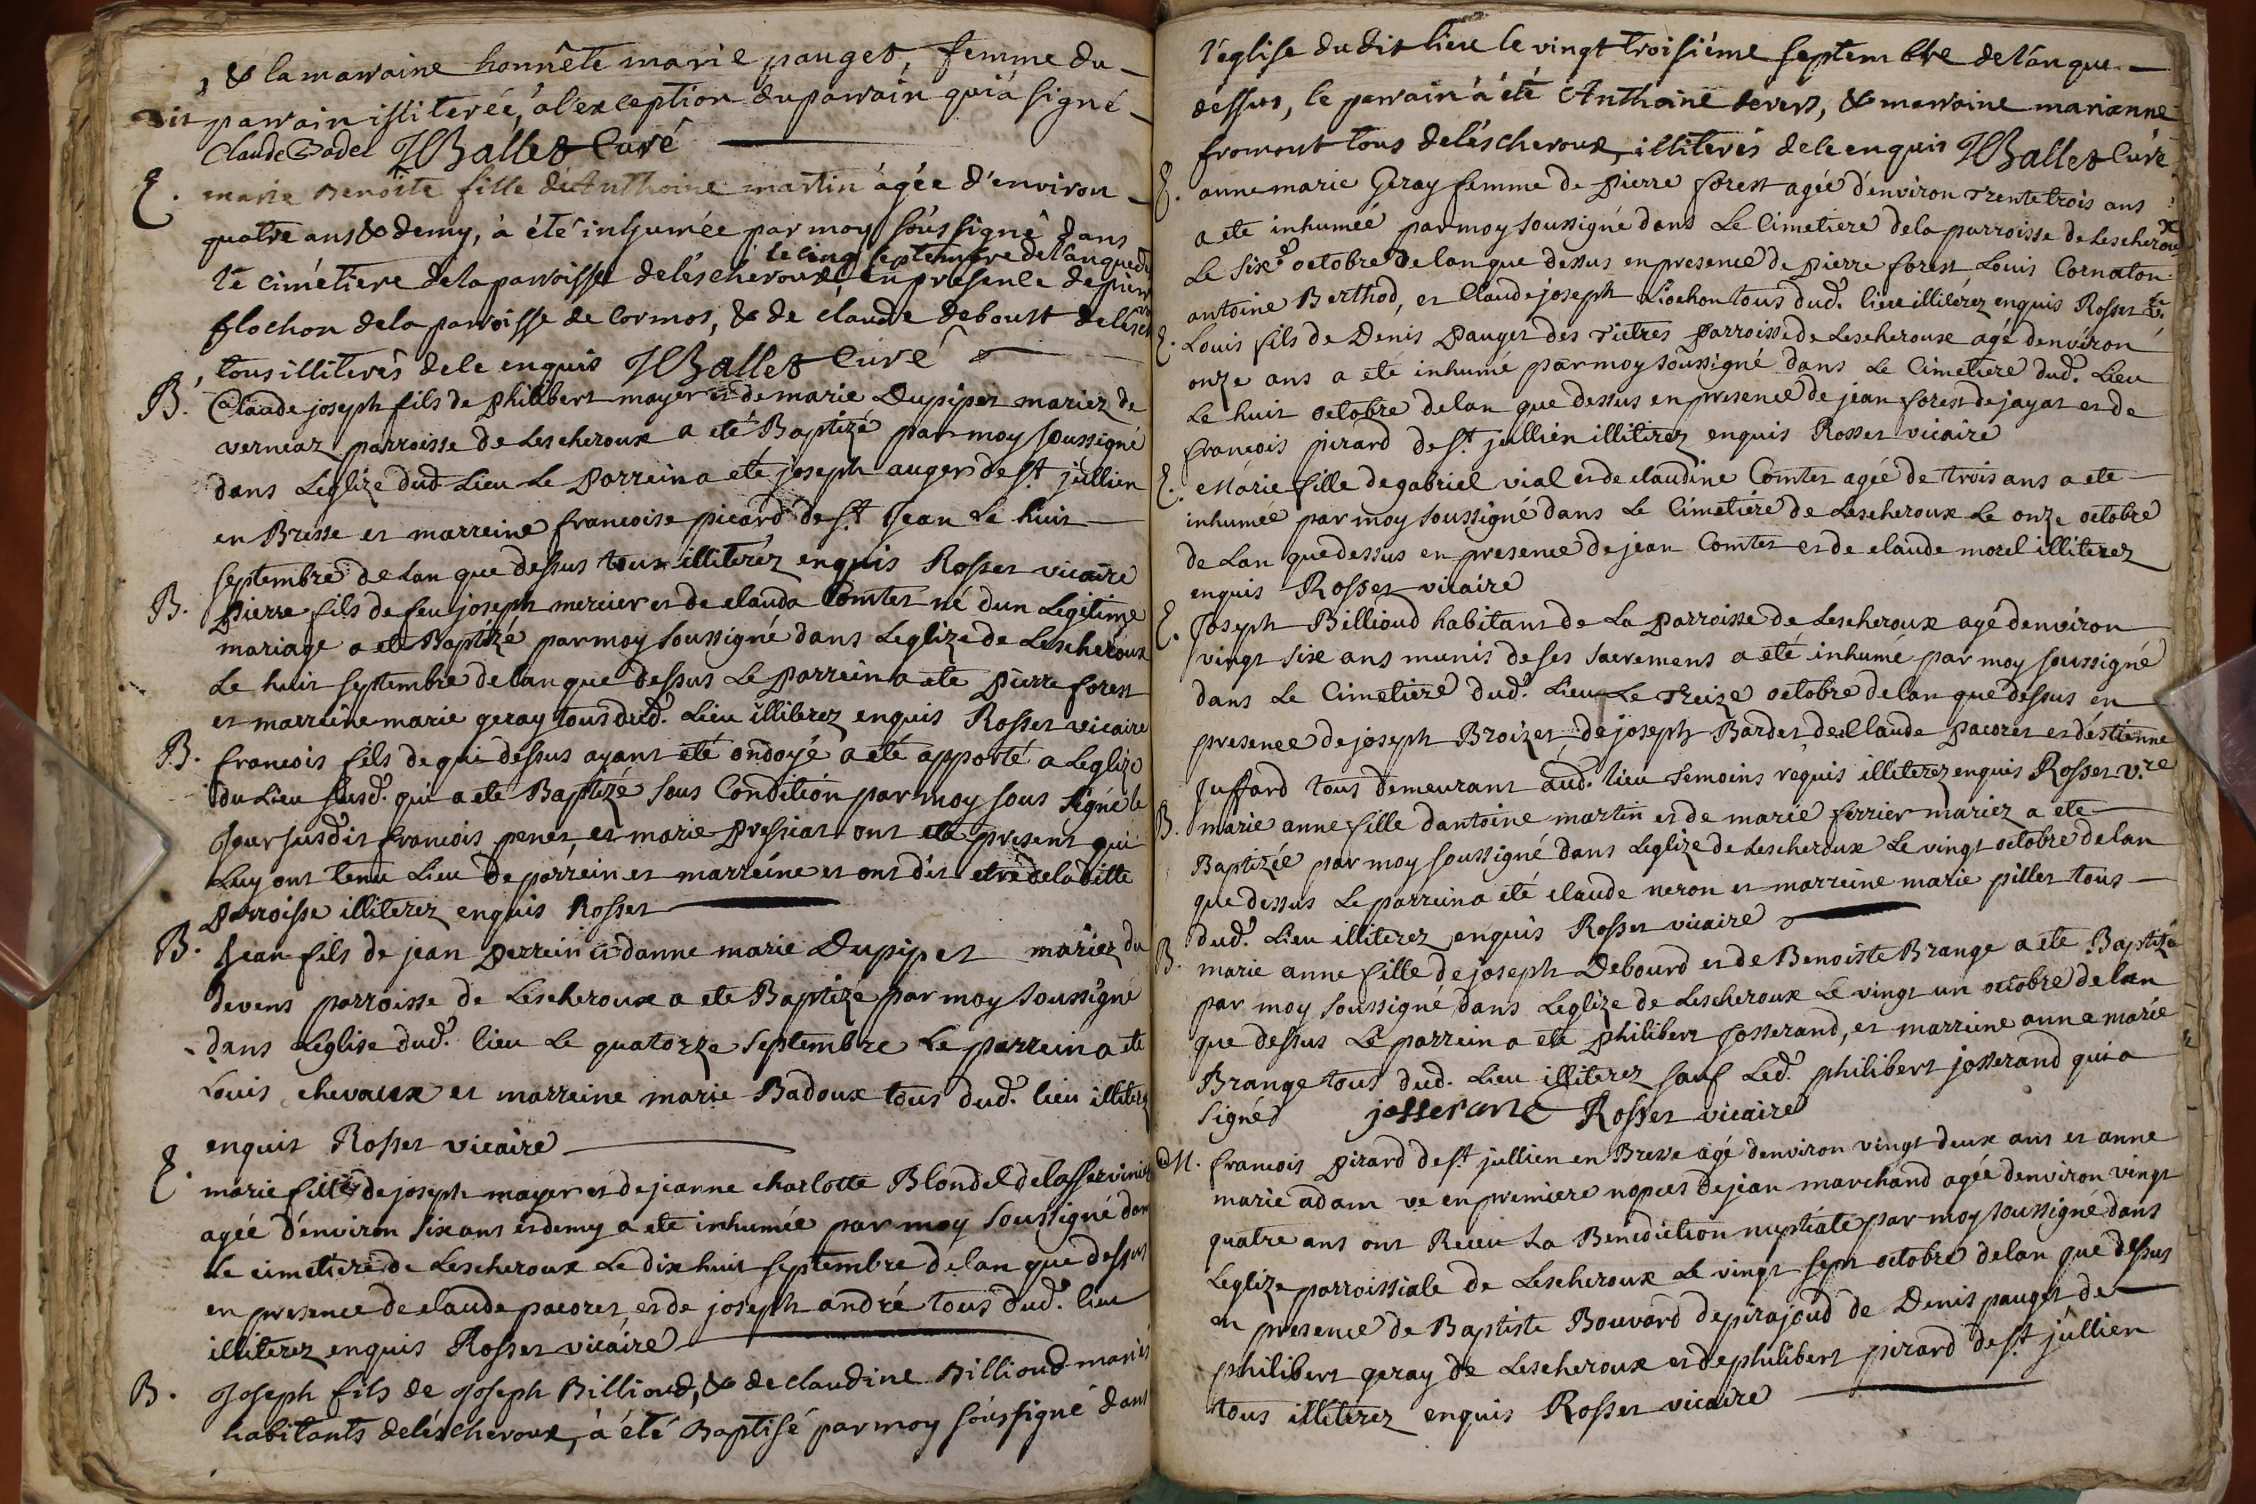 , & la marraine honnête marie pauget, femme du
dit parrain illiterée, à l'exception du parrain qui à signé
Claude Badel JBallet Curé
E. marie Benoite fille de Anthoine martin âgée d'environ
quatre ans & demy, à été inhumée par moy soussigné dans
le cinq septembre de l'an que de
le cimétiere de la parroisse de léscheroux, en présence de pierre
flochon de la parroisse de Cormos, & de claude deboust de lésch
, tous illiterés de le enquis JBallet Curé
B. Claude joseph fils de philibert mayer et de marie Dupipet mariez de
verneaz parroisse de Lescheroux a eté Baptizé par moy soussigné
dans Leglize dud Lieu Le parrein a eté joseph auger de st jullien
en Bresse et marreine francoise picard de st jean Le huit
septembre de Lan que dessus tous illiterez enquis Rosset vicaire
B. Pierre fils de feu joseph mercier et de clauda Comtet né dun Legitime
mariage a eté Baptizé par moy soussigné dans Leglize de Lescheroux
Le huit septembre de lan que dessus Le parrein a ete pierre forest
et marreine marie geray tous dud. Lieu illiterez enquis Rosset vicaire
B. francois fils de qui dessus ayant eté ondoyé a eté apporté a Leglize
du Lieu susd. qui a ete Baptizé sous Condition par moy sous signé le
jour susdit francois penet, et marie pressiat ont eté present qui
Luy ont tenu Lieu de parrein et marreine et ont dit etre de la ditte
parroisse illiterez enquis Rosset
B. Jean fils de jean perrein et danne marie Dupipet mariez du
devens parroisse de Lescheroux a ete Baptizé par moy soussigné
dans Léglise dud. lieu Le quatorze septembre Le parrein a eté
Louis chevaux et marreine marie Badoux tous dud. lieu illiterez
enquis Rosset vicaire
E. marie fille de joseph mayer et de jeanne charlotte Blondel de lasserviniez
agée d'environ six ans et demy a ete inhumée par moy soussigné dans
Le cimetiere de Lescheroux Le dix huit septembre de lan que dessus
en presence de claude pacoret et de joseph andré tous dud. lieu
illiterez enquis Rosset vicaire
B. Joseph fils de Joseph Billioud, & de claudine Billioud mariés
habitants de léscheroux, à été Baptisé par moy soussigné dans
l'église du dit lieu le vingt troisiéme septembre de l'an que
dessus, le parrain à été Anthoine devers, & marraine marianne
fromont tous de léscheroux, illiterés de le enquis JBallet Curé
E. anne marie Geray femme de pierre forest agée d'environ Trente trois ans
a ete inhumée par moy soussigné dans Le Cimetiere de la parroisse de Lescheroux
Le sixe octobre de lan que dessus en presence de pierre forest Louis Cornaton
antoine Berthod, et Claude joseph Liochon tous dud. lieu illiterez enquis Rosset
E. Louis fils de Denis pauget des Tietres parroisse de Lescheroux agé denviron
onze ans a eté inhumé par moy soussigné dans Le Cimetiere dud. Lieu
Le huit octobre de lan que dessus en presence de jean forest de jayat et de
francois pirard de st. jullien illiterez enquis Rosset vicaire
E. Marie fille de gabriel vial et de claudine Comtet agée de trois ans a ete
inhumée par moy soussigné dans Le Cimetiére de Lescheroux Le onze octobre
de Lan que dessus en presence de jean Comtet et de claude morel illiterez
enquis Rosset vicaire
E. Joseph Billioud habitant de La parroisse de Lescheroux agé denviron
vingt six ans munis de ses sacremens a eté inhumé par moy soussigné
dans Le Cimetiere dud. Lieu Le Treize octobre de lan que dessus en
presence de joseph Broizet de joseph Bardet de Claude pacoret et déstienne
Juffard tous demeurant aud. lieu temoins requis illiterez enquis Rosset v.re
B. marie anne fille dantoine martin et de marie ferrier mariez a ete
Baptizée par moy soussigné dans Leglize de Lescheroux Le vingt octobre de lan
que dessus Le parrein a eté claude neron et marreine marie pillet tous
dud. Lieu illiterez enquis Rosset vicaire
B. marie anne fille de joseph Debourd et de Benoiste Brange a ete Baptizé
par moy soussigné dans Leglize de Lescheroux Le vingt un octobre de lan
que dessus Le parrein a eté philibert Josserand, et marreine anne marie
Brange tous dud. Lieu illiterez sauf Led. philibert josserand qui a
signé josseranc Rosset vicaire
M. francois pirard de st. jullien en Bresse agé denviron vingt deux ans et anne
marie adam ve en premiere nopces de jean marchand agée denviron vingt
quatre ans ont Receu La Benediction nuptiale par moy soussigné dans
Leglize parroissiale de Lescheroux Le vingt sept octobre de lan que dessus
en presence de Baptiste Bouvard de pirajoud de Denis pauget de
philibert geray de Lescheroux et de philibert pirard de st jullien
tous illiterez enquis Rosset vicaire